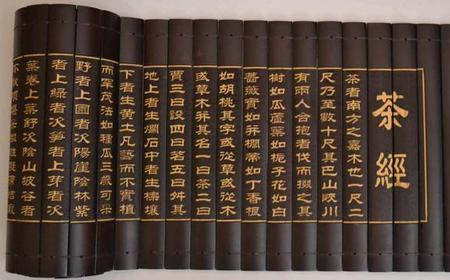 茶經
茶者南方之嘉木也一尺二
尺乃至數十尺其巴山峽川
有兩人合抱者伐而掇之其
樹如瓜蘆葉如梔子花如白
薔薇實如并棚蒂如丁香根
如胡桃其字或從草或從木
或草木并其名一曰茶二曰
賈三曰設四曰名五曰舛其
地上者生爛石中者生櫟壤
下者生黃土凡藝而不實植
而罕茂法如種瓜三歲可采
野者上園者次陽崖陰林紫
者上綠者次笋者上芽者次
葉卷上葉舒次陰山坡谷者